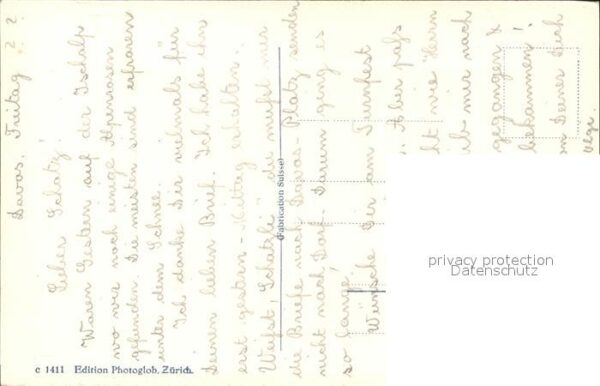 Davos, Freitag
Lieber Schatz!
Waren Gestern auf der Ischalp
wo wir noch einige Alpenrosen
gefunden. Die meisten sind erfroren
unter dem Schnee.
Ich danke Dir vielmals für
Deinen lieben Brief. Ich habe ihn
erst gestern-Mittag erhalten.
Weisst, Schatzli du musst mir
die Briefe nach Davos-Platz senden
nicht nach Dorf. Darum ging es
so lange!
Wünsche Dir am Turnfest
Aber pass
ht wie Herrn
ub mir nach
gegangen &
bekommen!
on Deiner Dich
c 1411 Edition Photoglob, Zürich.
(Fabrication Suisse)
privacy protection
Datenschutz